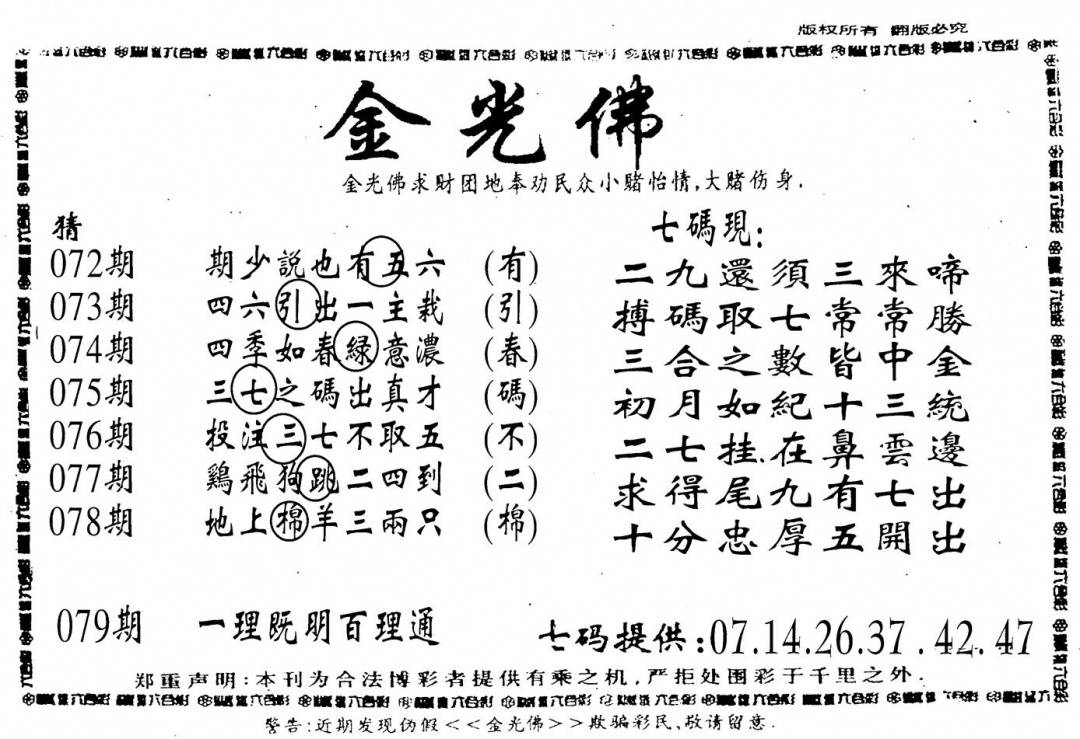 版权所有 翻版必究
金光佛
金光佛求财团地奉劝民众小赌怡情,大赌伤身.
猜
072期 期少說也有五六 (有)
073期 四六引出一主栽 (引)
074期 四季如春緑意濃 (春)
075期 三七之碼出真才 (碼)
076期 投注三七不取五 (不)
077期 鷄飛狗跳二四到 (二)
078期 地上棉羊三兩只 (棉)
七碼現:
二九還須三來啼
搏碼取七常常勝
三合之數皆中金
初月如紀十三統
二七挂在鼻雲邊
求得尾九有七出
十分忠厚五開出
079期 一理既明百理通 七码提供:07.14.26.37.42.47
郑重声明:本刊为合法博彩者提供有乘之机,严拒处围彩于千里之外.
警告:近期发现伪假<<金光佛>>欺骗彩民,敬请留意.